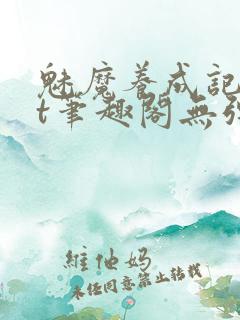 魅魔养成记
t筆趣閣無弹
維他妈
未经同意禁止转载